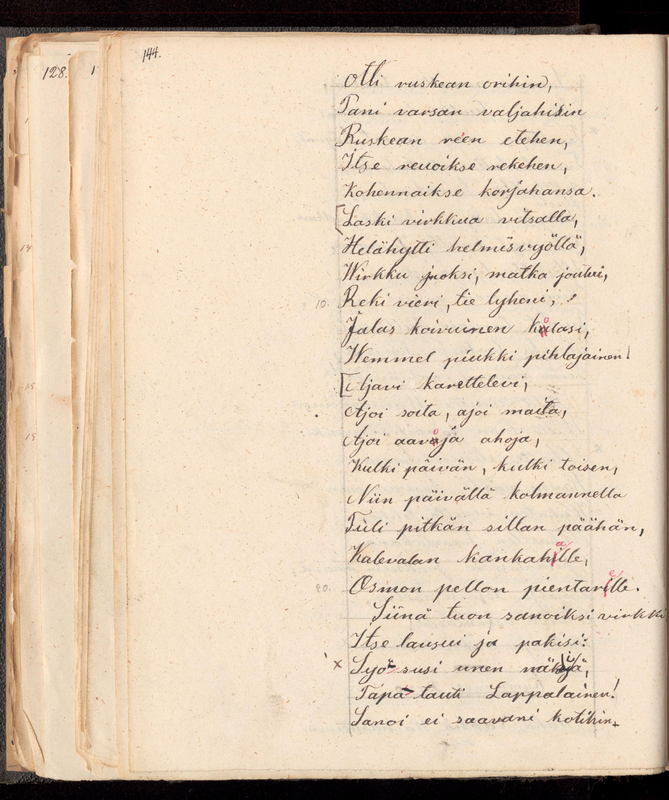 128.
144.
Otti ruskean orihin,
Pani varsan valjahisin
Ruskean reen etehen,
Itse reuoikse rekehen,
Kohennaikse korjahansa.
Laski virkkua vitsalla,
Helähytti helmisvyöllä,
Wirkku juoksi, matka joutui,
10. Reki vieri, tie lyheni,
Jalas koivuinen kolasi,
Wemmel piukki pihlajainen!
Ajavi karettelevi,
Ajoi soita, ajoi maita,
Ajoi aavoja ahoja,
Kulki päivän, kulki toisen,
Niin päivällä kolmannella
Tuli pitkän sillan päähän,
Kalevalan kankahalle,
20. Osmon pellon pientarelle.
Siinä tuon sanoiksi virkki
Itse lausui ja pakisi:
x Syö susi unen näkijä,
Tapa tauti Lappalainen!
Sanoi ei saavani kotihin